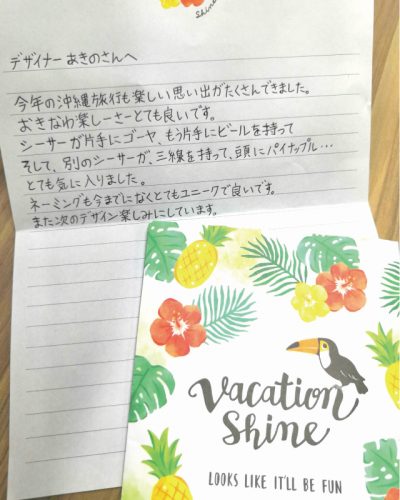 Shine
デザイナー あきのさんへ
今年の沖縄旅行も楽しい思い出がたくさんできました。
おきなわ楽しーさーとても良いです。
シーサーが片手にゴーヤ、もう片手にビールを持って
そして、別のシーサーが、三線を持って、頭にパイナップル…
とても気に入りました。
ネーミングも今までになくとてもユニークで良いです。
また次のデザイン楽しみにしています。
Vacation
Shine
LOOKS LIKE IT'LL BE FUN